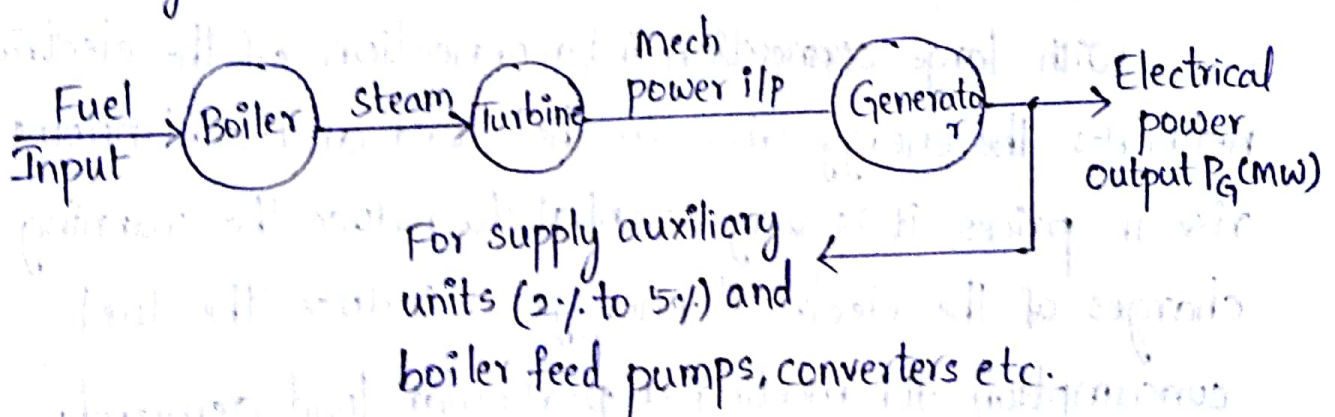 Fuel
Input
Boiler
Steam
Turbine
Mech
power i/p
Generator
Electrical
power
output PG(MW)
For supply auxiliary
units (2% to 5%) and
boiler feed pumps, converters etc.